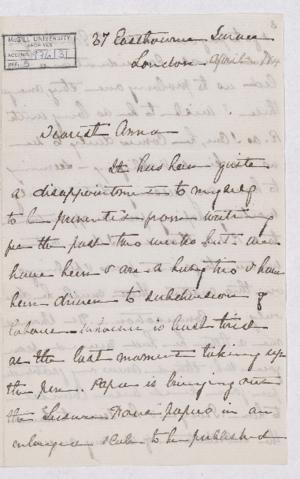 McGILL UNIVERSITY
ARCHIVES
ACC. NO.
REF.
37 Eastbourne
London April
Dearest Anna
It has been quite
a disappointment to myself
to be prevented from writing
for the past two weeks but we
have been & are a busy & have
been driven to subdivision of
labour is busy
at the last moment taking up
the pen. Papa is bringing out
the papers in an
enlarged scale to be published